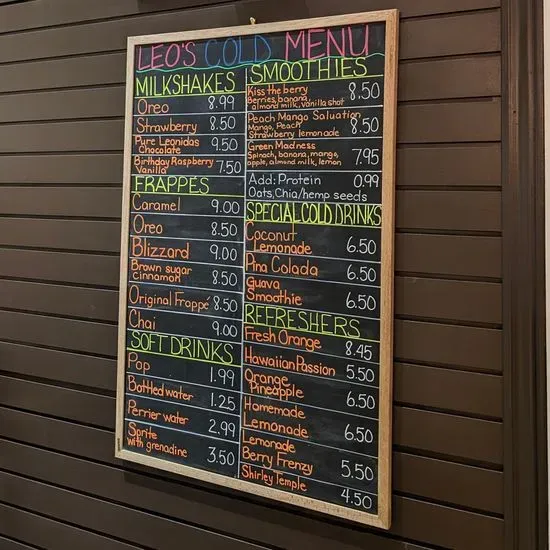 LEO'S COLD MENU
MILKSHAKES
Oreo 8.99
Strawberry 8.50
Pure Leonidas
Chocolate 9.50
Birthday Raspberry
Vanilla 7.50
FRAPPES
Caramel 9.00
Oreo 8.50
Blizzard 9.00
Brown sugar
cinnamon 8.50
Original Frappé 8.50
Chai 9.00
SOFT DRINKS
Pop 1.99
Bottled water 1.25
Perrier water 2.99
Sprite
with grenadine 3.50
SMOOTHIES
Kiss the berry 8.50
Berries, banana,
almond milk, vanilla shot
Peach Mango Saluation
Mango, Peach 8.50
Strawberry lemonade
Green Madness
Spinach, banana, mango, 7.95
apple, almond milk, lemon
Add: Protein 0.99
Oats, Chia/hemp seeds
SPECIAL COLD DRINKS
Coconut
Lemonade 6.50
Pina Colada 6.50
Guava
Smoothie 6.50
REFRESHERS
Fresh Orange 8.45
Hawaiian Passion 5.50
Orange
Pineapple 6.50
Homemade
Lemonade 6.50
Lemonade
Berry Frenzy 5.50
Shirley Temple 4.50